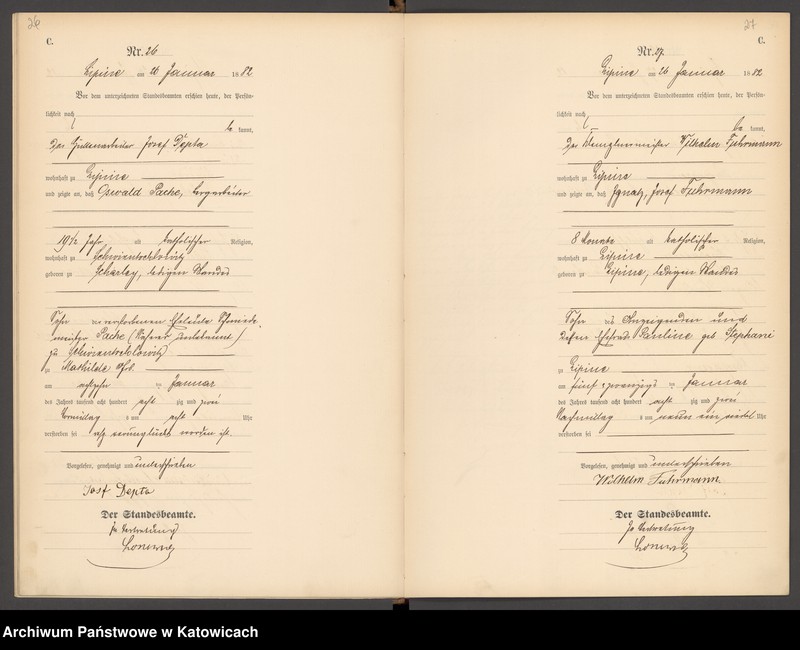 26
C.
Nr. 26
Lipine am 26 Januar 1882
Vor dem unterzeichneten Standesbeamten erschien heute, der Persön-
lichkeit nach
be kannt,
der Hüttenarbeiter Josef Depta
wohnhaft zu Lipine
und zeigte an, daß Oswald Pache, Bergarbeiter
19 1/2 Jahr, alt katholischer Religion,
wohnhaft zu Schwientochlowitz
geboren zu Scharley, ledigen Standes
Sohn der verstorbenen Eheleute Schmiede-
meister Pache (Vorname unbekannt)
zu Schwientochlowitz
zu Mathilde Grb.
am achtzehn ten Januar
des Jahres tausend acht hundert acht zig und zwei
Vormittag s um acht Uhr
verstorben sei
verunglückt worden ist.
Vorgelesen, genehmigt und unterschrieben
Josef Depta
Der Standesbeamte.
In Vertretung
27
C.
Nr. 27.
Lipine am 26 Januar 1882
Vor dem unterzeichneten Standesbeamten erschien heute, der Persön-
lichkeit nach
be kannt,
der Klempnermeister Wilhelm Fuhrmann
wohnhaft zu Lipine
und zeigte an, daß Ignatz, Josef Fuhrmann
8 Monate alt katholischer Religion,
wohnhaft zu Lipine
geboren zu Lipine, ledigen Standes
Sohn des Anzeigenden und
dessen Ehefrau Pauline geb Stephani
zu Lipine
am fünf zwanzigs ten Januar
des Jahres tausend acht hundert acht zig und zwei
Nachmittag s um neun ein viertel Uhr
verstorben sei
Vorgelesen, genehmigt und unterschrieben
Wilhelm Fuhrmann.
Der Standesbeamte.
In Vertretung
Archiwum Państwowe w Katowicach